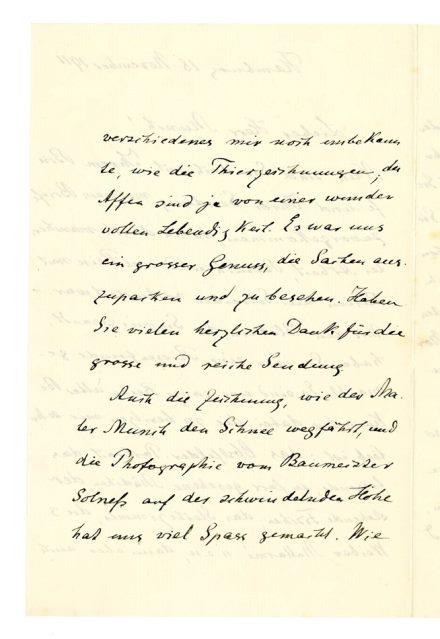 verschiedenes mir noch unbekann
te, wie die Thierzeichnungen, die
Affen sind ja von einer wunder
vollen Lebendigkeit. Es war uns
ein grosser Genuss, die Sachen aus-
zupacken und zu besehen. Haben
Sie vielen herzlichen Dank für die
grosse und reiche Sendung
Auch die Zeichnung, wie der Ma-
ler Munch den Schnee wegfährt, und
die Photographie vom Baumeister
Solneß auf der schwindelnden Höhe
hat uns viel Spass gemacht. Wie